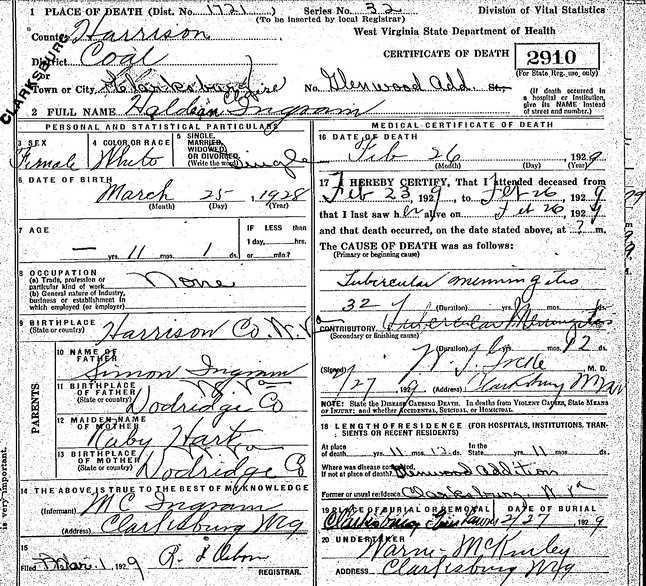 1 PLACE OF DEATH (Dist. No. 1721 ) Series No. 32 Division of Vital Statistics
(To be inserted by local Registrar)
County Harrison West Virginia State Department of Health
CLARKSBURG
District Coal CERTIFICATE OF DEATH 2910
or (For State Reg. use only)
Town or City, Clarksburg No. Glenwood Add St.
(If death occurred in a hospital or institution, give its NAME instead of street and number.)
2 FULL NAME Ingram
PERSONAL AND STATISTICAL PARTICULARS
3 SEX Female
4 COLOR OR RACE White
5 SINGLE, MARRIED, WIDOWED OR DIVORCED (Write the word) Single
6 DATE OF BIRTH
March 25, 1928
(Month) (Day) (Year)
7 AGE
— yrs. 11 mos. 1 ds.
IF LESS than 1 day, hrs. or min.?
8 OCCUPATION
(a) Trade, profession or particular kind of work None
(b) General nature of industry, business or establishment in which employed (or employer)
9 BIRTHPLACE
(State or country) Harrison Co. W. Va
PARENTS
10 NAME OF FATHER
Simon Ingram
11 BIRTHPLACE OF FATHER W Va
(State or country) Dodridge Co
12 MAIDEN NAME OF MOTHER
Ruby Hart
13 BIRTHPLACE OF MOTHER W Va
(State or country) Dodridge Co
14 THE ABOVE IS TRUE TO THE BEST OF MY KNOWLEDGE
(Informant) M C Ingram
(Address) Clarksburg
15
Filed Mar. 1, 1929
REGISTRAR.
is very important.
MEDICAL CERTIFICATE OF DEATH
16 DATE OF DEATH
Feb 26, 1929
(Month) (Day) (Year)
17 I HEREBY CERTIFY, That I attended deceased from
Feb 23, 1929, to Feb 26, 1929
that I last saw her alive on Feb 26, 1929
and that death occurred, on the date stated above, at ? m.
The CAUSE OF DEATH was as follows:
(Primary or beginning cause)
Tubercular menningitis
32 (Duration) yrs. mos. ds.
CONTRIBUTORY Tubercular Menningitis
(Secondary or finishing cause)
(Duration) yrs. mos. ds.
(Signed) M. D.
2/27, 1929 (Address) Clarksburg
NOTE: State the DISEASE CAUSING DEATH. In deaths from VIOLENT CAUSES, State MEANS OF INJURY; and whether ACCIDENTAL, SUICIDAL, or HOMICIDAL.
18 LENGTH OF RESIDENCE (FOR HOSPITALS, INSTITUTIONS, TRANSIENTS OR RECENT RESIDENTS)
At place of death yrs. 11 mos. ds. In the State yrs. 11 mos. ds.
Where was disease contracted, If not at place of death? Glenwood Addition
Former or usual residence Clarksburg W. Va
19 PLACE OF BURIAL OR REMOVAL DATE OF BURIAL
Clarksburg 2/27, 1929
20 UNDERTAKER
ADDRESS Clarksburg